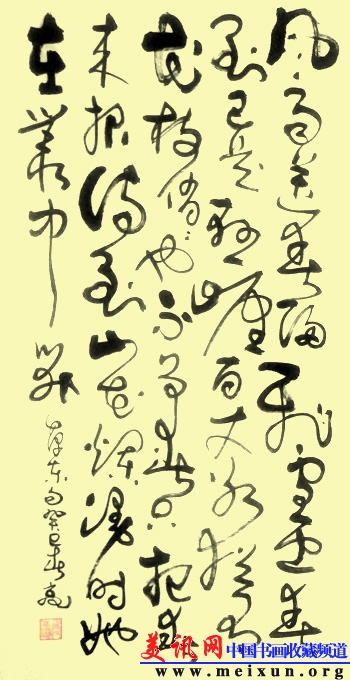 风雨送春归飞雪迎春
到已是悬崖百丈冰犹有
花枝俏俏也不争春只把春
来报待到山花烂漫时她
在丛中笑
泽东句癸巳春
美讯网 中国书画收藏频道
www.meixun.org